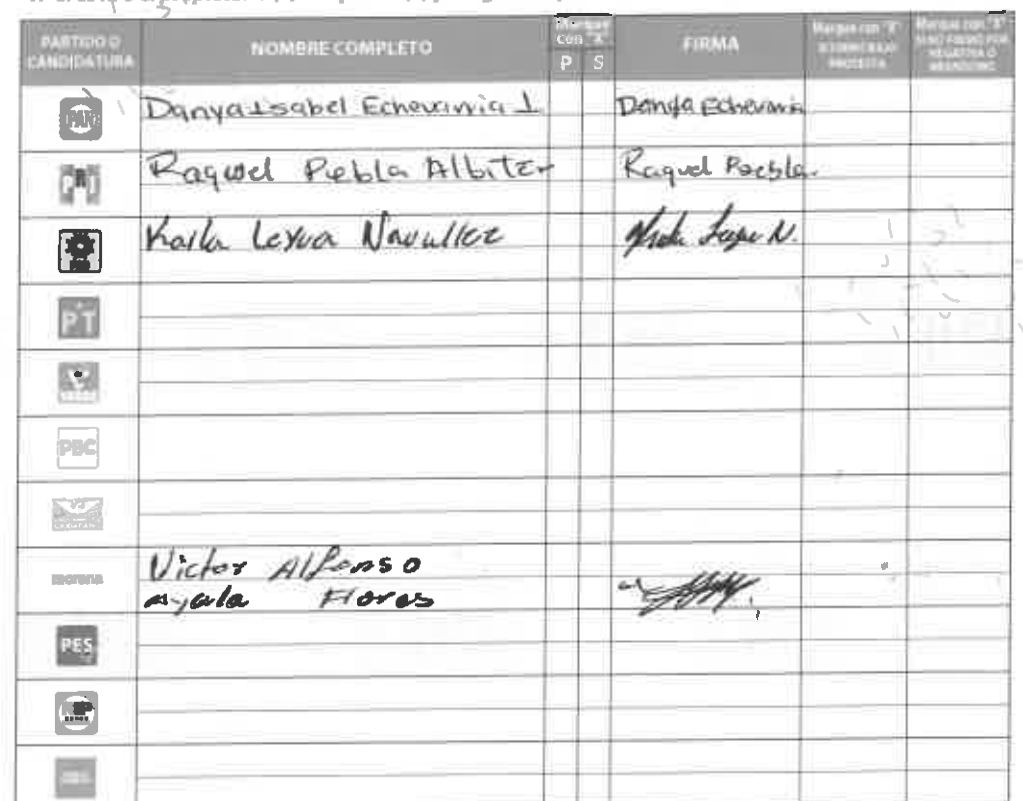 PARTIDO O CANDIDATURA NOMBRE COMPLETO Marque con "X" P S FIRMA Marque con "X" SI FIRMÓ BAJO PROTESTA Marque con "X" SI NO FIRMÓ POR NEGATIVA O ABANDONO
PAN Danya Isabel Echevarria L Danya Echevarria
PRI Raquel Puebla Albiter Raquel Puebla
Karla Leyva Navallez
PT
VERDE
PBC
morena Victor Alfonso
Ayala Flores
PES